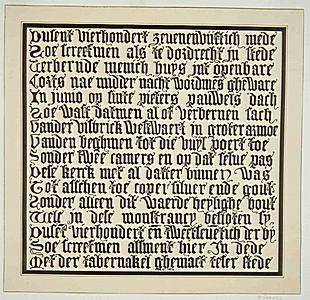 Dusent vierhondert zevenenviiftich mede
Soe screefmen als te dordrecht in stede
Verbernde menich huys int openbare
Corts nae midder nacht wordmes gheware
In junio op sinte pieters pauwels dach
Soe wast datmen al verbernen sach
vander visbrick westwaert in groter armoe
vanden beghinnen tot die vuyl poert toe
Sonder twee camers en op dat selue pas
Dese kerck met al datter binnen was
Tot asschen toe coper siluer ende gout
Sonder alleen dit waerde heylighe hout
Welc in dese monstrancy besloten sy
Dusent vierhondert en
Soe screefmen alsment hier in dede
Met der tabernakel ghemaect teser stede